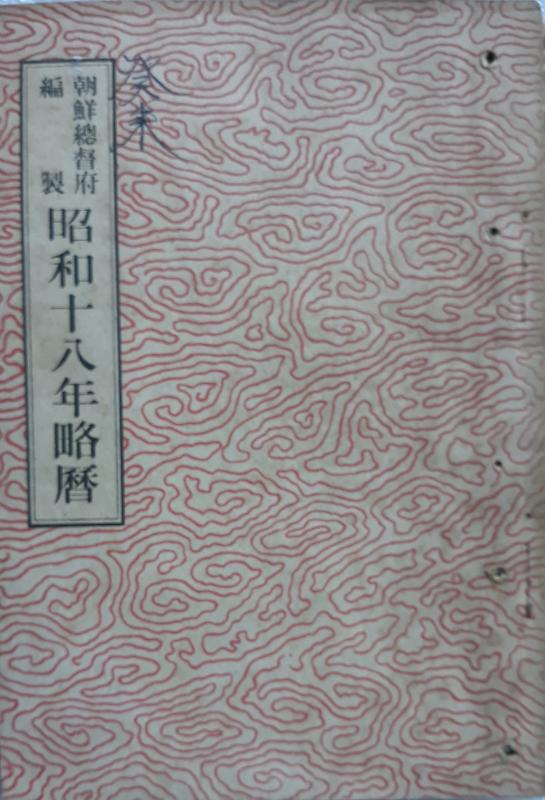 朝鮮總督府
編製
昭和十八年略曆
癸未